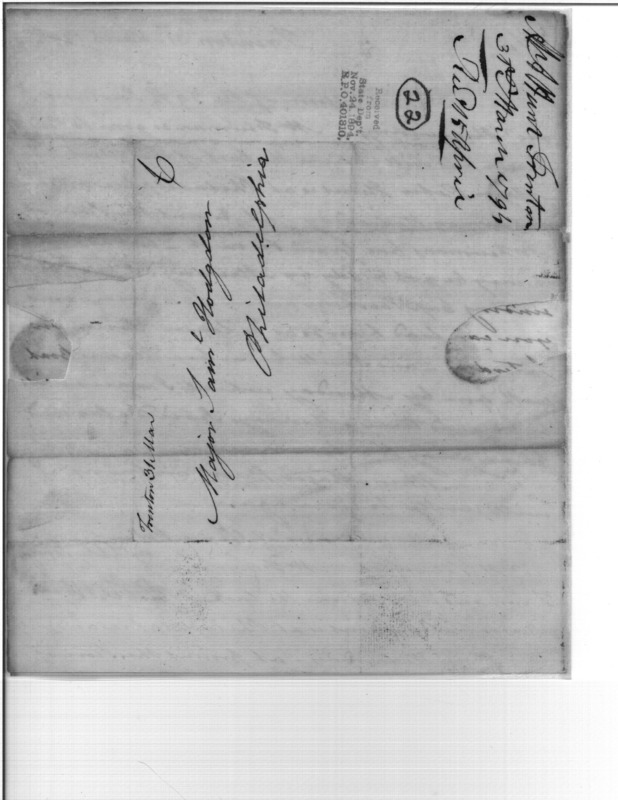 Abm Hunt Trenton
31st March 1794
Recd 5 April
22
Received
from
State Dept.
Nov. 24, 1894.
R.P.O. 401810.
6
Major Saml Hodgdon
Philadelphia
Trenton 31 Mar